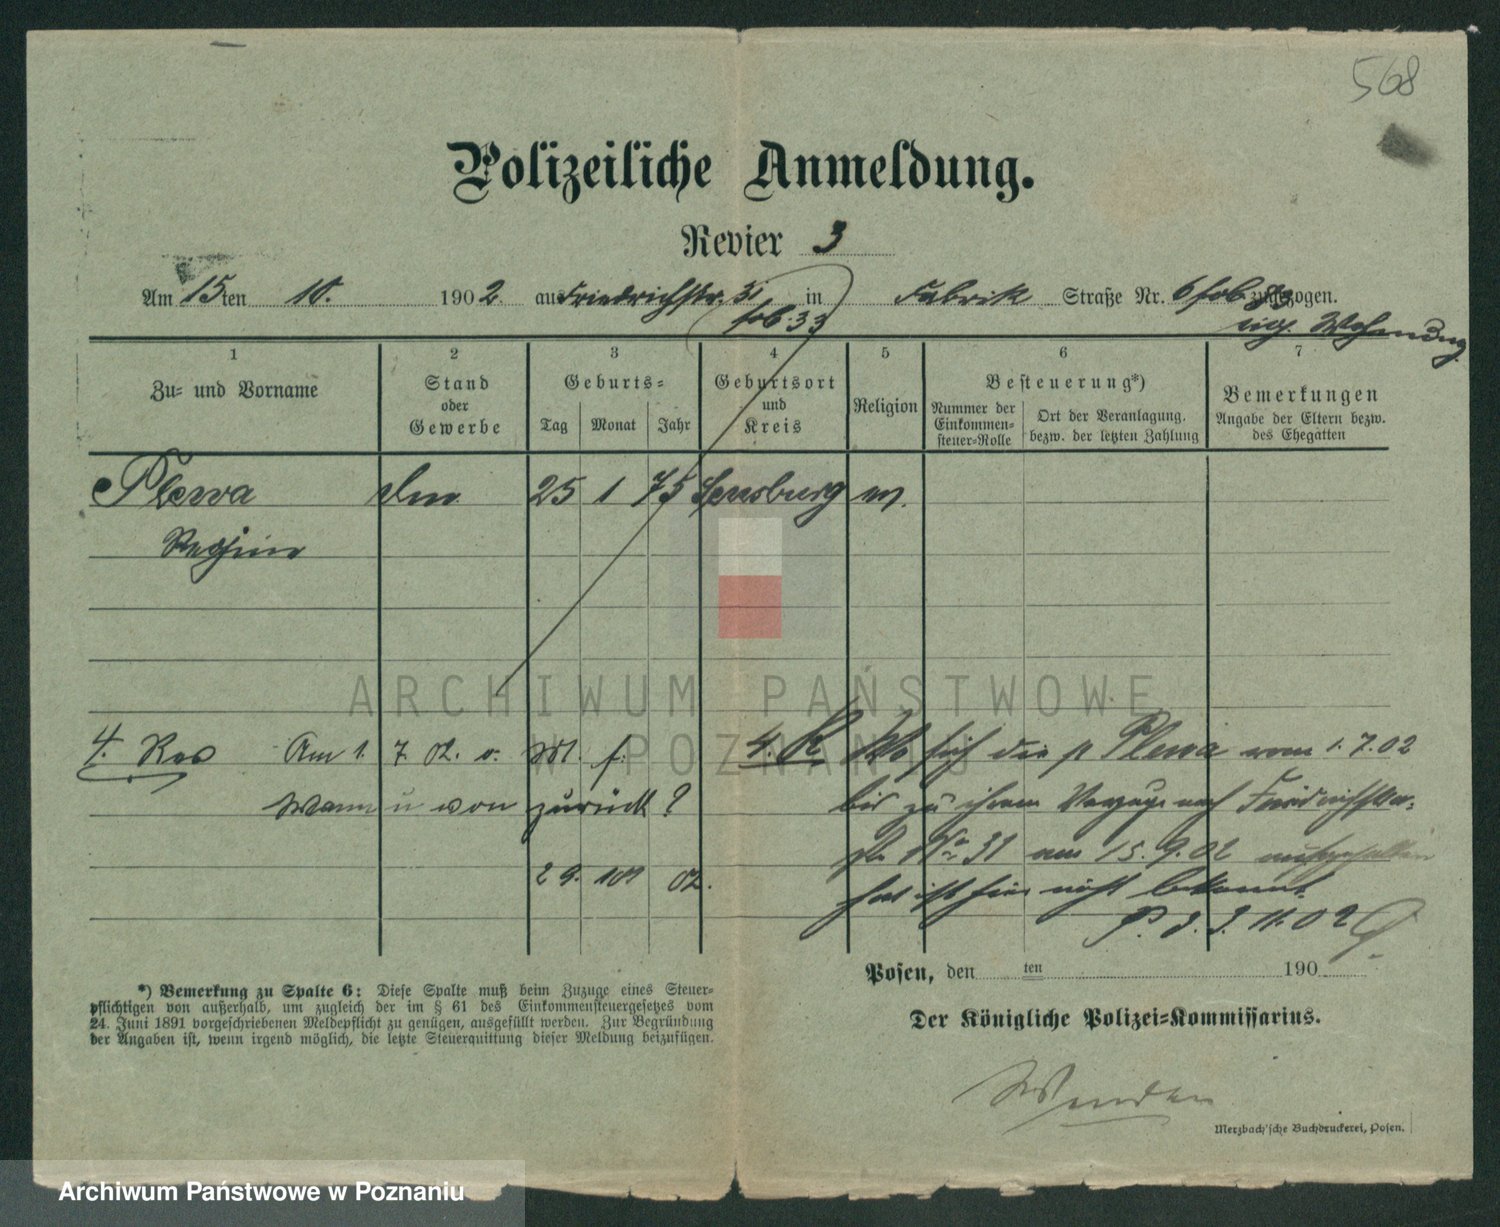 568
Polizeiliche Anmeldung.
Revier 3
Am 15ten 10. 1902 aus Friedrichstr. 31 in Fabrik Straße Nr. 6 zugezogen.
33
Wohnung
1 2 3 4 5 6 7
Zu- und Vorname
Stand oder Gewerbe
Geburts-
Tag Monat Jahr
Geburtsort und Kreis
Religion
Besteuerung*)
Nummer der Einkommen-steuer-Rolle
Ort der Veranlagung. bezw. der letzten Zahlung
Bemerkungen
Angabe der Eltern bezw. des Ehegatten
Plewa 25 1 75 Sensburg
Regine
4. Rev Am 1. 7. 02. v. M. f.
Wann u von zurück?
29. 10 02.
4. R. Wo sich die p Plewa vom 1.7.02
bis zu ihrem Verzuge nach Friedrichstra-
ße No 31 am 15.9.02 aufgehalten
hat ist hier nicht bekannt.
P. d. 3. 11. 02
Posen, den ten 190
*) Bemerkung zu Spalte 6: Diese Spalte muß beim Zuzuge eines Steuer-
pflichtigen von außerhalb, um zugleich der im § 61 des Einkommensteuergesetzes vom
24. Juni 1891 vorgeschriebenen Meldepflicht zu genügen, ausgefüllt werden. Zur Begründung
der Angaben ist, wenn irgend möglich, die letzte Steuerquittung dieser Meldung beizufügen.
Der Königliche Polizei-Kommissarius.
Wenden
Merzbach'sche Buchdruckerei, Posen.
ARCHIWUM PAŃSTWOWE
W POZNANIU
Archiwum Państwowe w Poznaniu